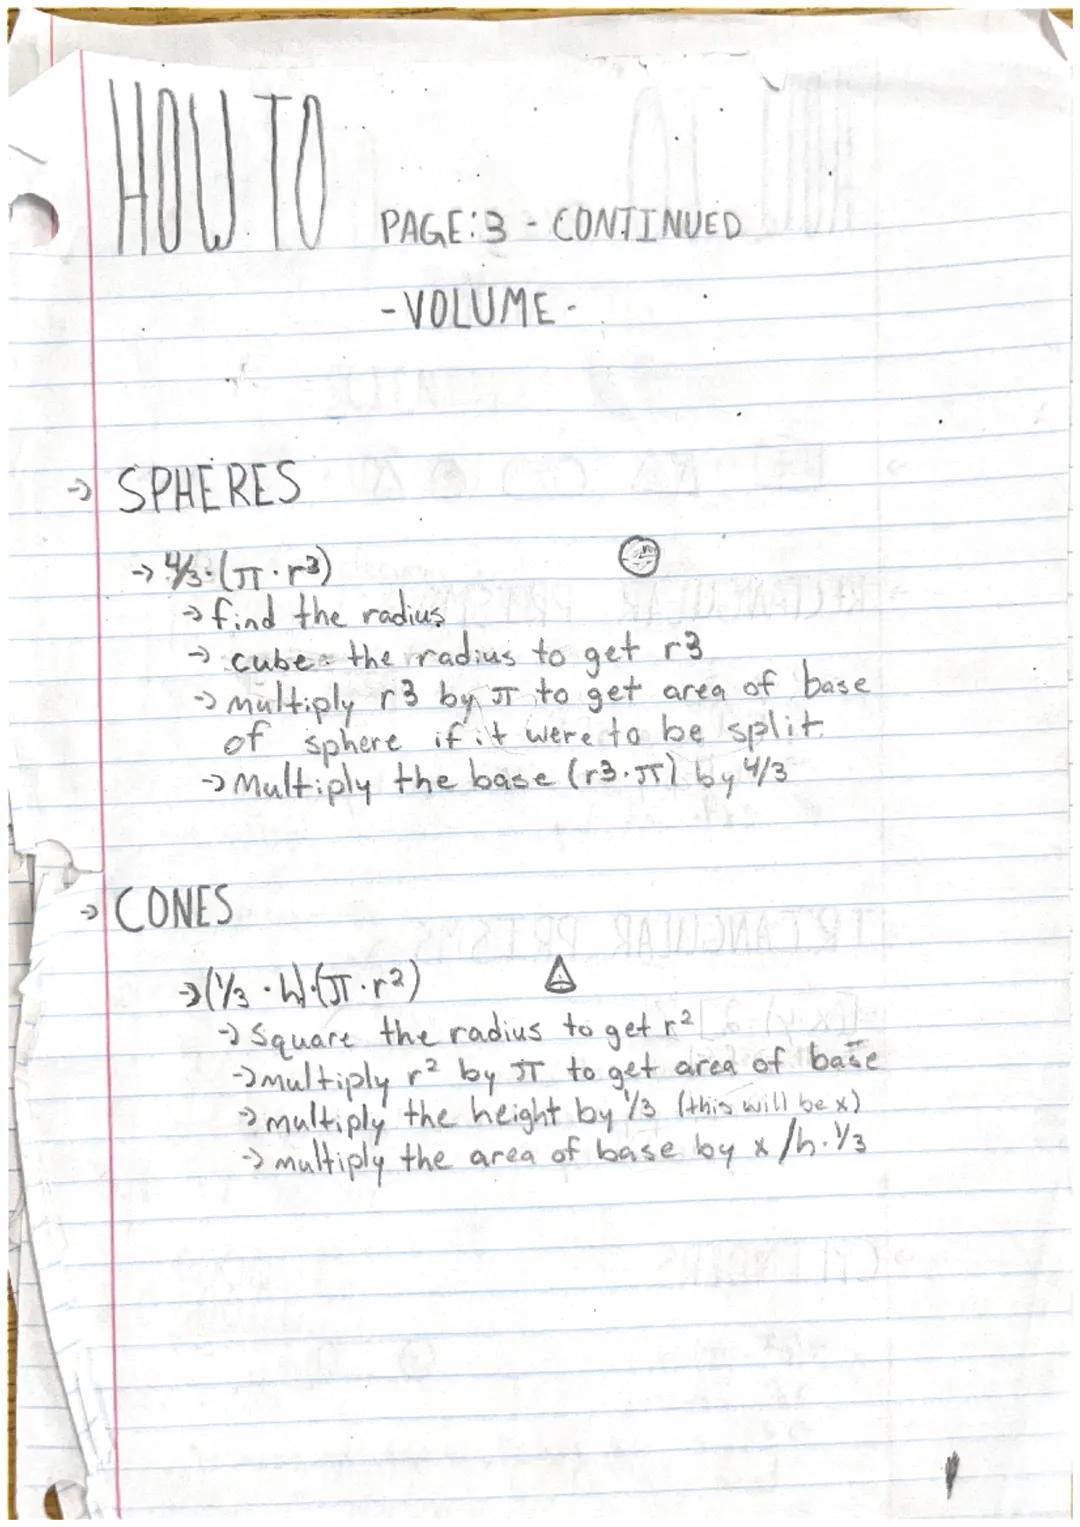 HOW TO
PAGE:3 - CONTINUED
-VOLUME-
→ SPHERES
→ 4/3·(π·r³)
→ find the radius
→ cube the radius to get r3
→ multiply r3 by π to get area of base
of sphere if it were to be split.
→ Multiply the base (r3·π) by 4/3
→ CONES
→ (1/3 · h)·(π·r²)
→ Square the radius to get r²
→ multiply r² by π to get area of base
→ multiply the height by 1/3 (this will be x)
→ multiply the area of base by x /h·1/3